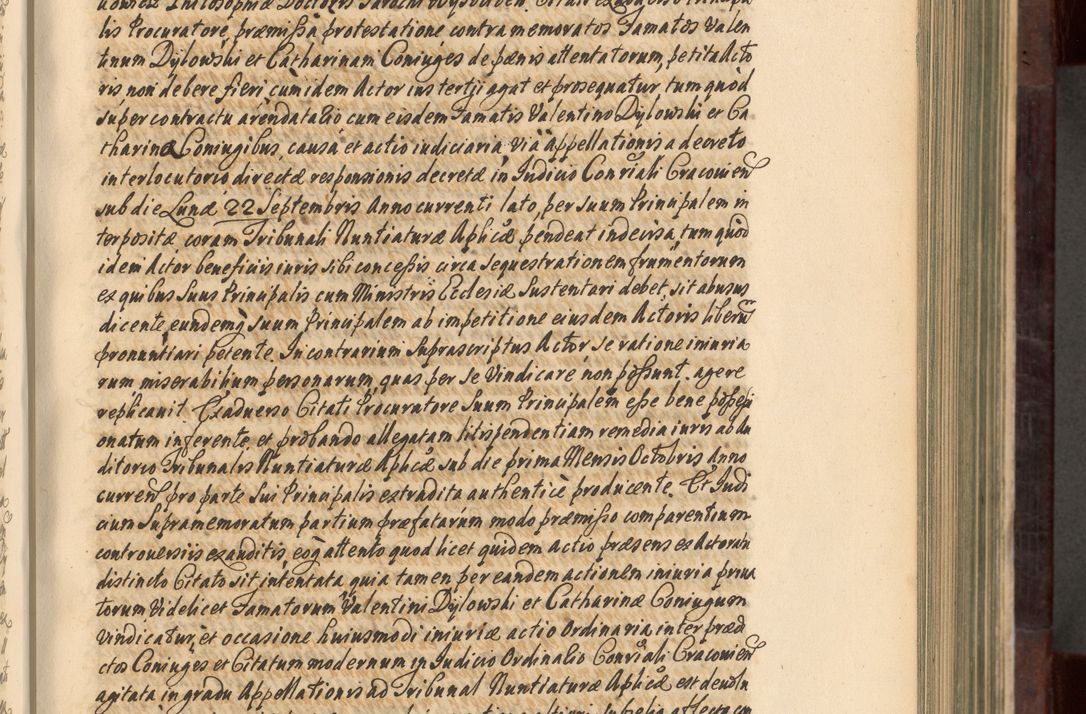 lis Procuratore, præmissa protestatione contra memoratos Famatos Valen
tinum Dylowski et Catharinam Coniuges de pænis attentatorum, petita Acto
ris non debere fieri cum idem Actor ius tertÿ agat et prosequatur, tum quòd
super contractu arendatalio cum eisdem Famatis Valentino Dylowski et Ca
tharinæ Coniugibus, causa et actio iudiciaria via Appellationis a decreto
interlocutorio directæ responsionis decretæ in Judicio Consŕiali Cracovień
sub die Lunæ 22 Septembris Anno currenti lato, per suum Principalem in
terpositæ coram Tribunali Nuntiaturæ Aplicæ pendeat indecisa, tum quòd
idem Actor beneficiis iuris sibi concessis circa sequestrationem frumentorum
ex quibus Suus Principalis cum Ministris Ecclesiæ Sustentari debet, sit abusus
dicente, eundemq suum Principalem ab impetitione eiusdem Actoris liberũ
pronuntiari petente. In contrarium Suprascriptus Actor se ratione iniuria
rum miserabilium personarum, quas per se vindicare non possunt, agere
replicavit. Exadverso Citati Procuratore Suum Principalem esse bene possessi
onatum inferente, et probando allegatam litispendentiam remedia iuris ab Au
ditoreo Tribunalis Nuntiaturæ Aplicæ sub die prima Mensis Octobris Anno
curreń pro parte Sui Principalis extradita authenticè producente. Et Judi
cium Supramemoratum partium præfatarum modo præmisso comparentium
controversiis exauditis, eoq attento quod licet quidem Actio præsens ex Actoratu
distincto Citato sit intentata, quia tamen per eandem actionem iniuria priva
torum videlicet Famatorum Valentini Dylowski et Catharinæ Coniugum
vindicatur, et occasione huiusmodi iniuriæ actio Ordinaria inter præd
ctos Coniuges et Citatum modernum in Judicio Ordinalio Consŕiali Cracovień
agitata in gradu Appellationis ad Tribunal Nuntiaturæ Aplicæ est devolu